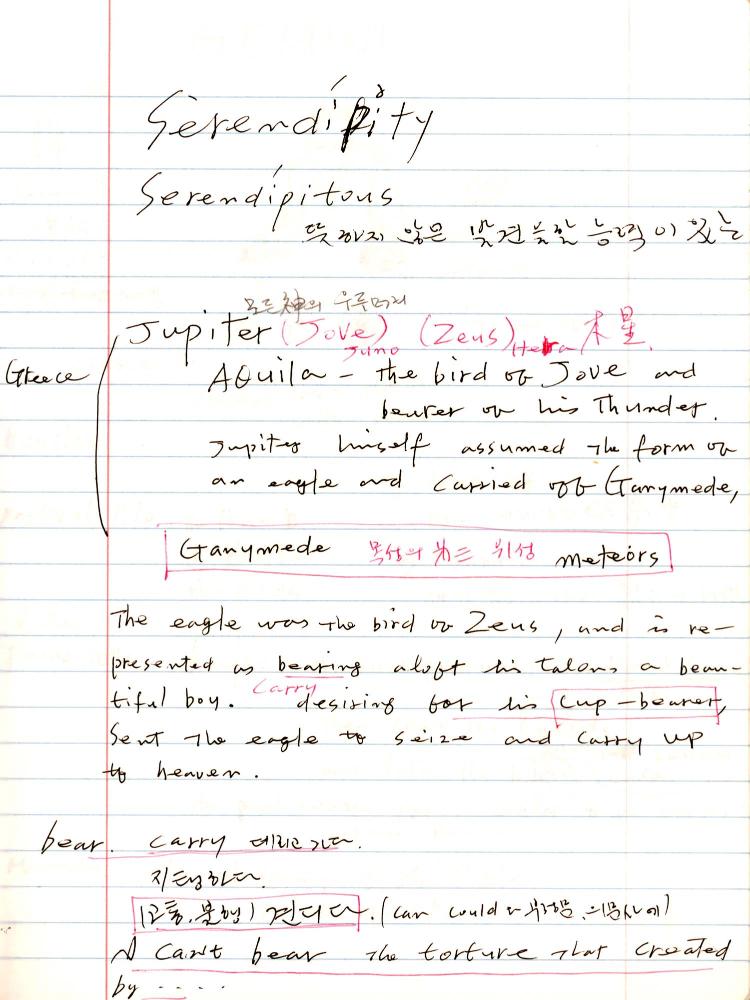 Serendipity
Serendipitous
뜻하지 않은 발견을할 능력이 있는
모든神의 우두머리
Jupiter (Jove) (Zeus) 木星.
Juno Hera
Greece AQuila - the bird of Jove and
bearer of his Thunder.
Jupiter himself assumed the form of
an eagle and carried off Ganymede,
Ganymede 목성의 위성 meteors
The eagle was the bird of Zeus, and is re-
presented as bearing aloft his talons a beau-
tiful boy. carry desiring for his Cup-bearer,
Sent the eagle to seize and carry up
to heaven.
bear. carry 데리고가다.
지탱하다.
(고통.불행) 견디다. (can could 부정문.의문사에)
Can't bear the torture that created
by .....